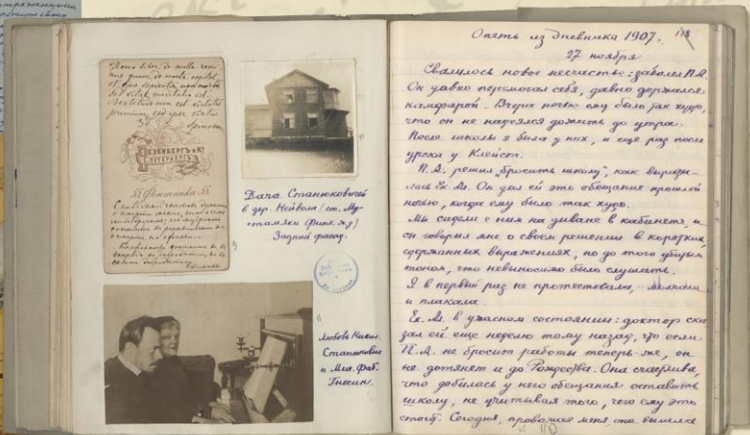 Homo liber de nulla re mi-
nus quam de morte cogitat
et ejus sapientia non mortis
sed vitae meditatio est.
Beatitudo non est virtutis
praemium sed ipsa virtus
Spinoza
ВЕЗЕНБЕРГЪ и Ко
ПЕТЕРБУРГЪ
Дача Станюковичей
в дер. Нейвола (ст. Му-
стамяки Финл. ж.д.)
Задний фасад.
Любовь Никол.
Станюкович
и Мих. Фаб.
Гнесин.
Опять из дневника 1907.
27 ноября
Свалилось новое несчастье: заболел П.А.
Он давно перемогал себя, давно держался
камфарой. Вчера ночью ему было так худо,
что он не надеялся дожить до утра.
После школы я была у них, и еще раз после
урока у Клейст.
П.А. решил „бросить школу", как вырази-
лась Ек. М. Он дал ей это обещание прошлой
ночью, когда ему было так худо.
Мы сидели с ним на диване в кабинете, и
он говорил мне о своем решении в коротких,
сдержанных выражениях, но до того убитым
тоном, что невыносимо было слушать.
Я в первый раз не протестовала, – молчала
и плакала.
Ек. М. в ужасном состоянии: доктор ска-
зал ей еще неделю тому назад, что если
П.А. не бросит работы теперь же, он
не дотянет и до Рождества. Она счастлива,
что добилась у него обещания оставить
школу, не учитывая того, чего ему это
стоит. Сегодня, провожая меня, она вышла